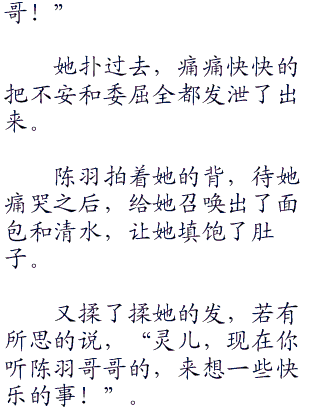 哥！”
她扑过去，痛痛快快的
把不安和委屈全都发泄了出
来。
陈羽拍着她的背，待她
痛哭之后，给她召唤出了面
包和清水，让她填饱了肚
子。
又揉了揉她的发，若有
所思的说，“灵儿，现在你
听陈羽哥哥的，来想一些快
乐的事！”。